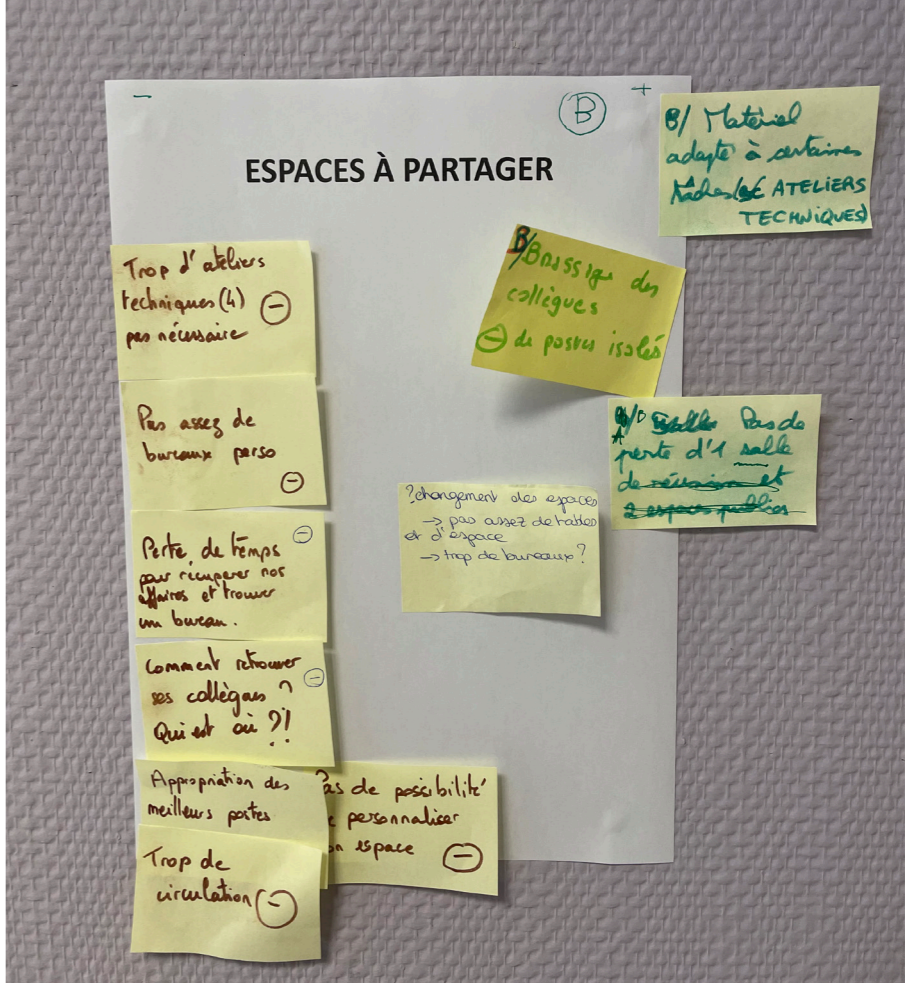 -
+
B
ESPACES À PARTAGER
B/ Matériel
adapté à certaines
tâches ATELIERS
TECHNIQUES)
Trop d'ateliers
techniques (4)
pas nécessaire
-
B/ Brassage des
collègues
- de postes isolés
Pas assez de
bureaux perso
-
Pas de
perte d'1 salle
de réunion et
2 espaces publics
?changement des espaces
→ pas assez de tables
et d'espace
→ trop de bureaux?
Perte de temps
pour récuperer nos
affaires et trouver
un bureau.
-
Comment retrouver
ses collègues ?
Qui est où ?!
-
Appropriation des
meilleurs postes
Pas de possibilité
personnaliser
espace
-
Trop de
circulation
-